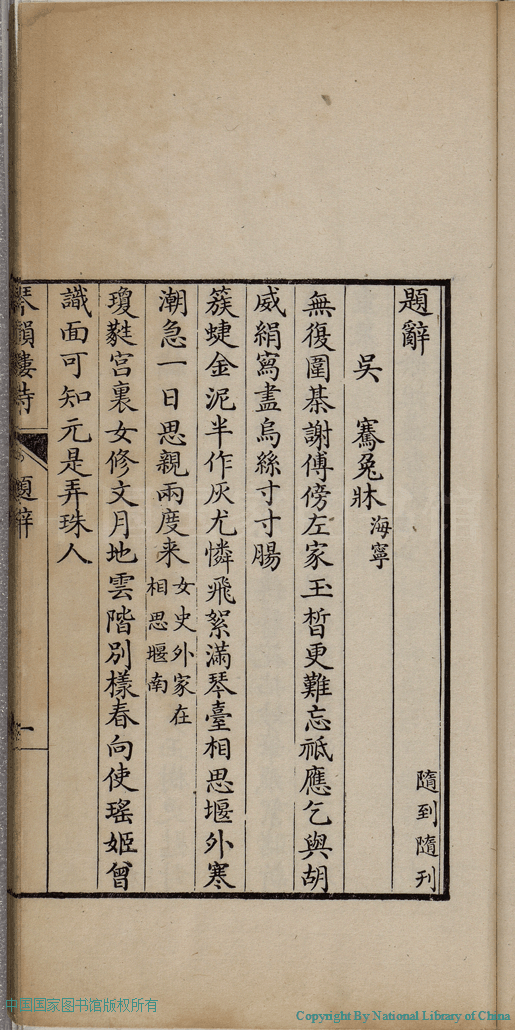 題辭 隨到隨刊
吳騫兔牀 海寧
無復圍棊謝傅傍左家玉晳更難忘祗應乞與胡
威絹寫盡烏絲寸寸腸
簇蜨金泥半作灰尤憐飛絮滿琴臺相思堰外寒
潮急一日思親兩度来 女史外家在
相思堰南
瓊蕤宮裏女修文月地雲階別樣春向使瑤姬曾
識面可知元是弄珠人
琴韻樓詩 題辭 一
中国国家图书馆版权所有
Copyright By National Library of China